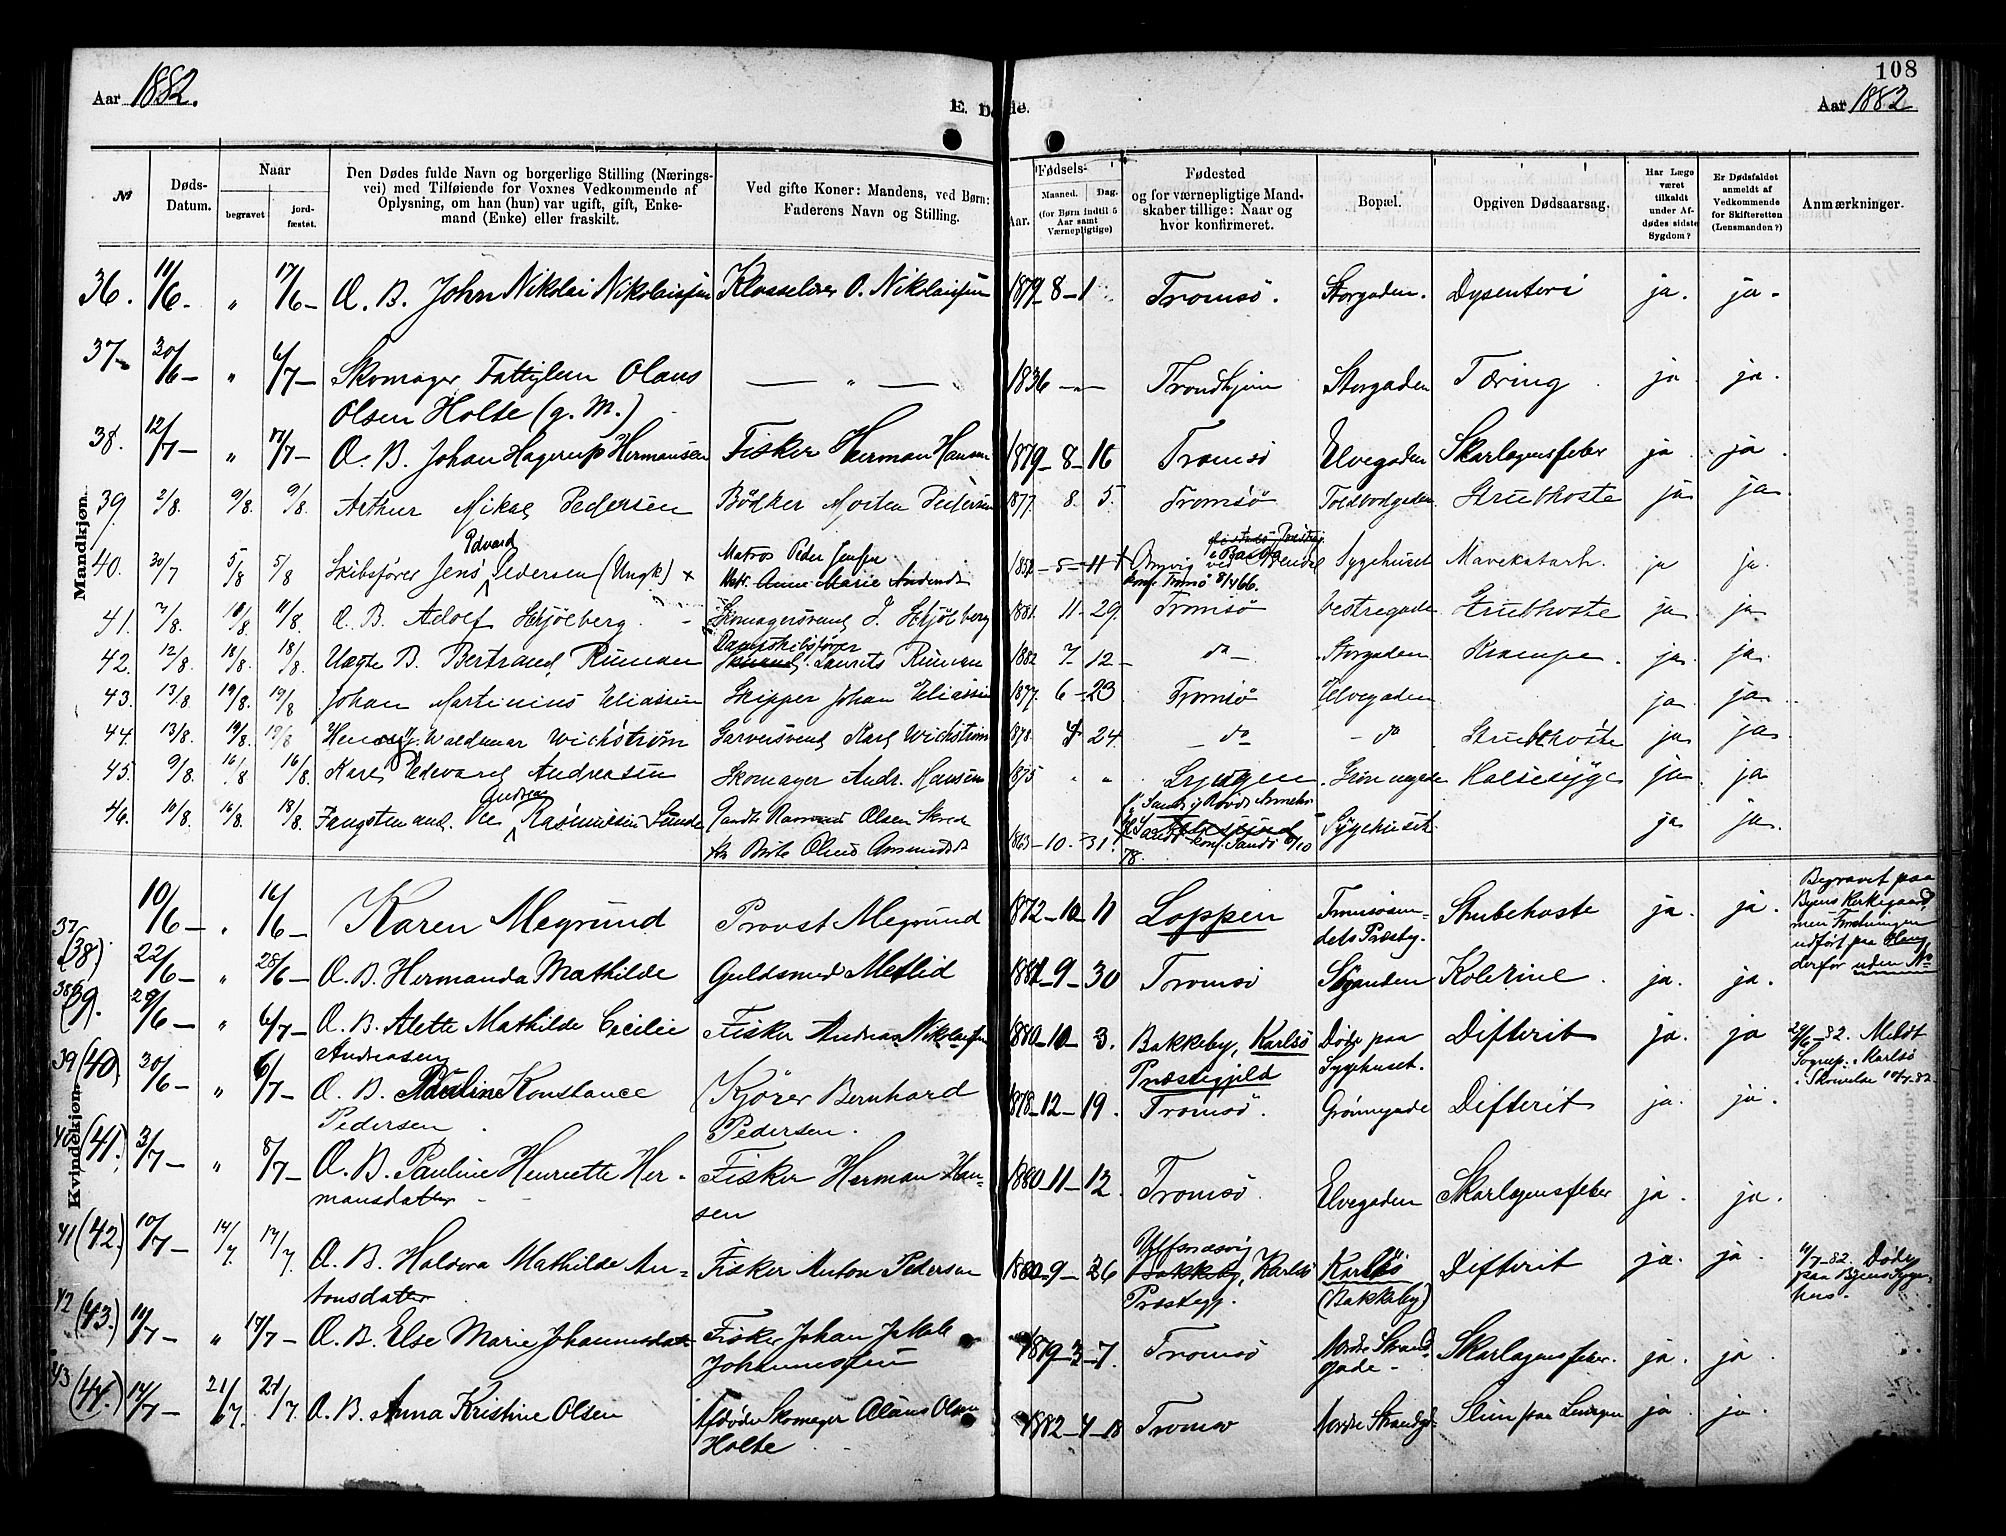 108
Aar 1882.
E. Døde.
Aar 1882
№
Døds-Datum.
Naar
begravet
jord-fæstet.
Den Dødes fulde Navn og borgerlige Stilling (Nærings-
vei) med Tilføiende for Voxnes Vedkommende af
Oplysning, om han (hun) var ugift, gift, Enke-
mand (Enke) eller fraskilt.
Ved gifte Koner: Mandens, ved Børn:
Faderens Navn og Stilling.
Fødsels-
Aar.
Maaned.
Dag.
(for Børn indtil 5
Aar samt
Værnepligtige)
Fødested
og for værnepligtige Mand-
skaber tillige: Naar og
hvor konfirmeret.
Bopæl.
Opgiven Dødsaarsag.
Har Læge
været
tilkaldt
under Af-
dødes sidste
Sygdom?
Er Dødsfaldet
anmeldt af
Vedkommende
for Skifteretten
(Lensmanden?)
Anmærkninger.
Mandkjøn.
36. 11/6 - " 17/6 - Æ. B. John Nikolai Nikolaissen O. Nikolaissen 1879 - 8 - 1 Tromsø. Storgaden. Dysenteri ja. ja.
37 - 30/6 - " 6/7 - Skomager Olaus — " — 1836 - " - Trondhjem Storgaden Tæring ja ja.
Olsen Holte (g. M.)
38. 12/7 - " 17/7 - Æ. B. Johan Hagerup Hermansen Fisker Herman Hansen 1879 - 8 - 16 Tromsø Elvegaden Skarlagensfeber ja ja
39 2/8. 9/8. 9/8. Arthur Mikal Pedersen Bødker Morten Pedersen 1877. 8. 5. Tromsø Toldbodgaden Strubhoste ja ja
40. 30/7 5/8 5/8 Skibsfører Jens Edvard Pedersen (Ungk) x Matros Peder Jensen
Anne Marie - 11 konf. Tromsø 8/7 66. Sygehuset Mavekatarh. ja ja.
41. 7/8. 10/8. 11/8. Æ. B. Adolf Hjølberg. Skomagersvend J. Hjølberg 1881. 11 - 29. Tromsø Vestregade Strubhoste ja ja
42. 12/8. 18/8. 18/8. Uægte B. Bertrand Ruman Dampskibsfører Laurits Ruman 1882 7 - 12 - do - Storgaden Krampe. ja ja.
43. 13/8 19/8. 19/8 Johan Martinius Eliassen Skipper Johan Eliassen 1877. 6 - 23 Tromsø Elvegaden ja ja
44. 13/8. 19/8. 19/8 Waldemar Wichstrøm Garversvend Karl Wichstrøm 1878. 24. - do - - do Strubhoste ja ja
45. 9/8. 16/8 16/8. Karl Edvard Andreasen Skomager Andr. Hansen 1875 " " Lyngen Halsesyge ja ja
46. 10/8. 16/8. 18/8. Fangstmand. Ole Andreas Rasmussen Sande Olsen
1863 - 10. - 31. Sygehuset. ja ja.
78.
Kvindekjøn.
10/6 - " 16/6 - Karen Megrund Provst Megrund 1872 - 10 - 11 Loppen Tromsøsun-
dets Præsteg. Strubehoste ja. ja. Begravet paa
Byens Kirkegaard,
men Forretningen
udført paa
derfor uden No
37 (38) 22/6 - " 28/6 - Æ. B. Hermanda Mathilde Guldsmed Metlid 1881 - 9 - 30 Tromsø Kolerine. ja. ja.
38 (39). 29/6 - " 6/7 - Æ. B. Alette Mathilde Cecilie
Andreasen Fisker Andreas Nikolaissen 1880 - 10 - 3. Bakkeby, Karlsø
Præstegjeld Døde paa
Sygehuset. Difterit ja. ja 29/6 - 82. Meldt
Sognep. i Karlsø
i Skrivelse
39 (40) 30/6 - " 6/7 - Æ. B. Pauline Konstance
Pedersen Kjører Bernhard
Pedersen. 1878 - 12 - 19. Tromsø. Grønnegade Difterit ja. ja.
40 (41). 3/7 - " 8/7 - Æ. B. Pauline Henriette Her-
mansdatter - Fisker Herman Han-
sen 1880 - 11 - 12. Tromsø. Elvegaden Skarlagensfeber ja. ja.
41 (42.) 10/7 - 14/7. 17/7. Æ. B. Haldora Mathilde An-
tonsdatter Fisker Anton Pedersen 1880 - 9 - 26 Ulfsnæsvig
Bakkeby, Karlsø
Præstegj. Karlsø
(Bakkeby) Difterit ja. ja. 11/7 - 82. Døde
paa Byens Syge-
hus.
42 (43.) 11/7 - " 17/7 - Æ. B. Else Marie Johannesdat Fisker Johan Jakob
Johannessen 1879 - 3 - 7. Tromsø Nordre Strand-
gade - Skarlagensfeber. ja. ja.
43 (44.) 14/7 - 21/7. 21/7. Æ. B. Anna Kristine Olsen Afdøde Skomager Olaus Olsen
Holte 1882 - 4 - 18 Tromsø Nordre Strandgd. Slim paa Lungen ja. ja.